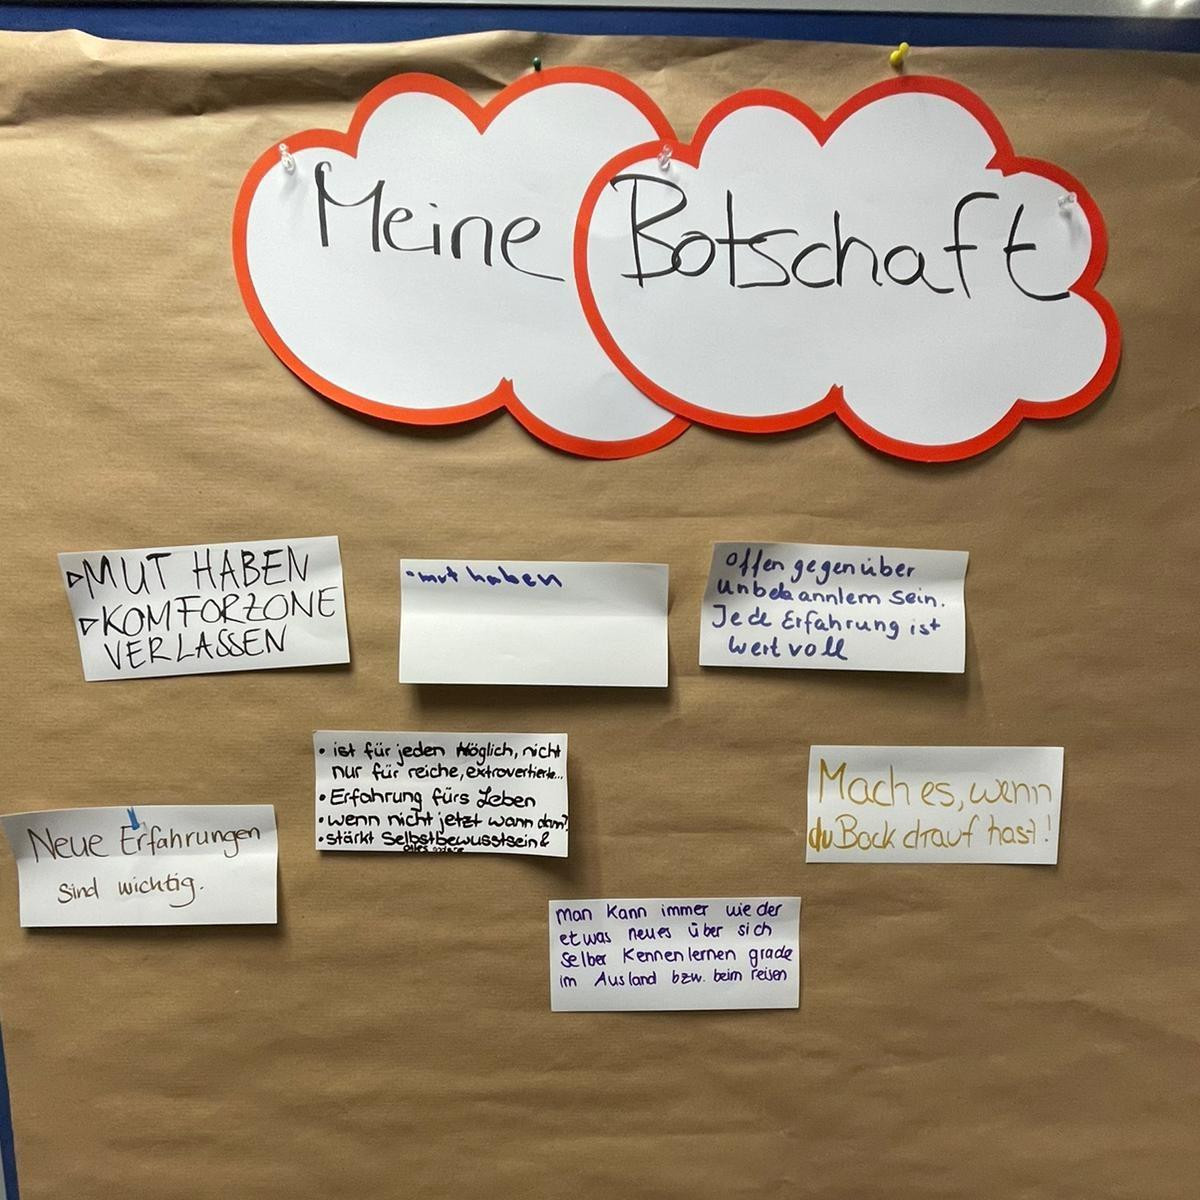 Meine Botschaft
▷MUT HABEN
▷KOMFORZONE
VERLASSEN
-mut haben
Offen gegenüber
unbekanntem sein.
Jede Erfahrung ist
wertvoll
• ist für jeden Möglich, nicht
nur für reiche, extrovertierte...
• Erfahrung fürs Leben
• wenn nicht jetzt wann dann?
• stärkt Selbstbewusstsein &
alles
Mach es, wenn
du Bock drauf hast!
Neue Erfahrungen
sind wichtig.
man kann immer wieder
etwas neues über sich
selber kennenlernen grade
im Ausland bzw. beim reisen